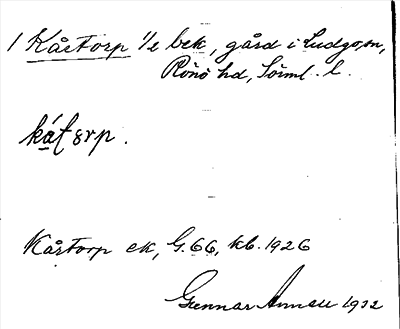 1 Kårtorp 1/2 bek, gård i Ludgo sn,
Rönö hd, Sörml. l.
Kårtorp ek, G. 66, kb. 1926
Gunnar 1932